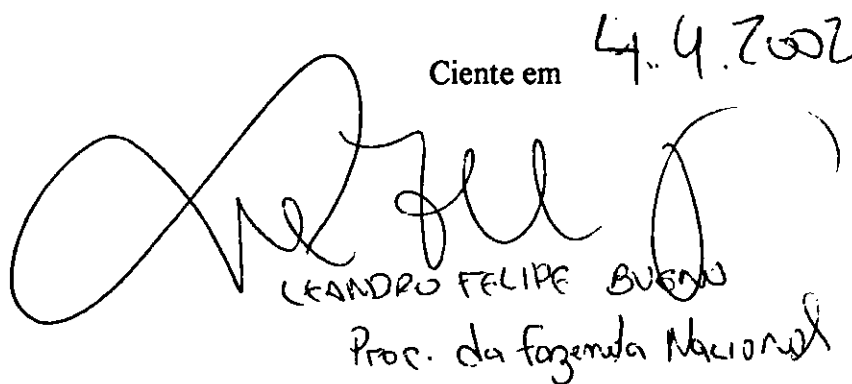 Ciente em 4.4.2002
LEANDRO FELIPE BUENO
Proc. da Fazenda Nacional